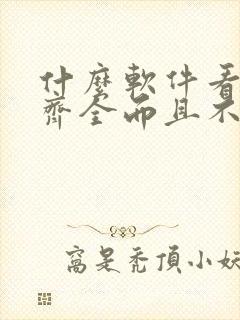 什麼軟件看
齊全而且不
窩是禿頂小妖